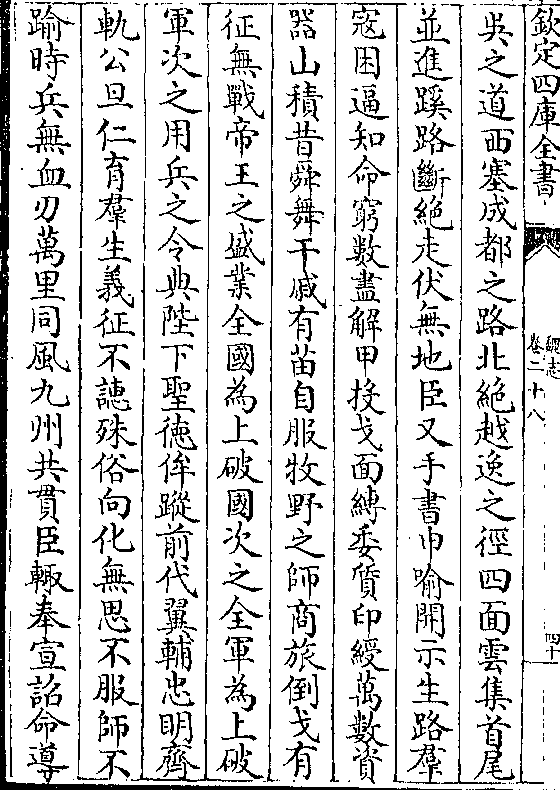 欽定四庫全書
魏志
卷二十八
四十
吳之道西塞成都之路北絶越逸之徑四面雲集首尾
並進蹊路斷絶走伏無地臣又手書申喻開示生路羣
寇困逼知命窮數盡解甲投戈面縛委質印綬萬數資
器山積昔舜舞干戚有苗自服牧野之師商旅倒戈有
征無戰帝王之盛業全國為上破國次之全軍為上破
軍次之用兵之令典陛下聖德侔蹤前代翼輔忠明齊
軌公旦仁育羣生義征不譓殊俗向化無思不服師不
踰時兵無血刃萬里同風九州共貫臣輙奉宣詔命導